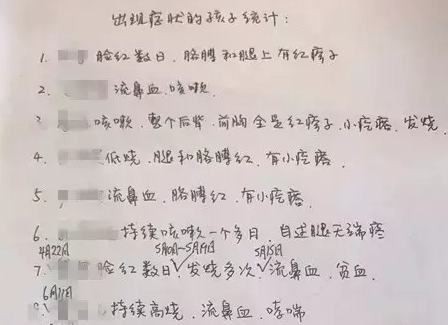 出现症状的孩子统计:
1. 脸红数日,胳膊和腿上有红疹子
2. 流鼻血,咳嗽.
3. 咳嗽,整个后背,前胸全是红疹子,小疙瘩,发烧
4. 低烧,腿和胳膊红,有小疙瘩.
5. 流鼻血,胳膊红,有小疙瘩.
6. 持续咳嗽一个多月,自述腿无端疼
4月22日 5月15日
7. 脸红数日√发烧多次√流鼻血,贫血.
6月11日
8 持续高烧,流鼻血,哮喘